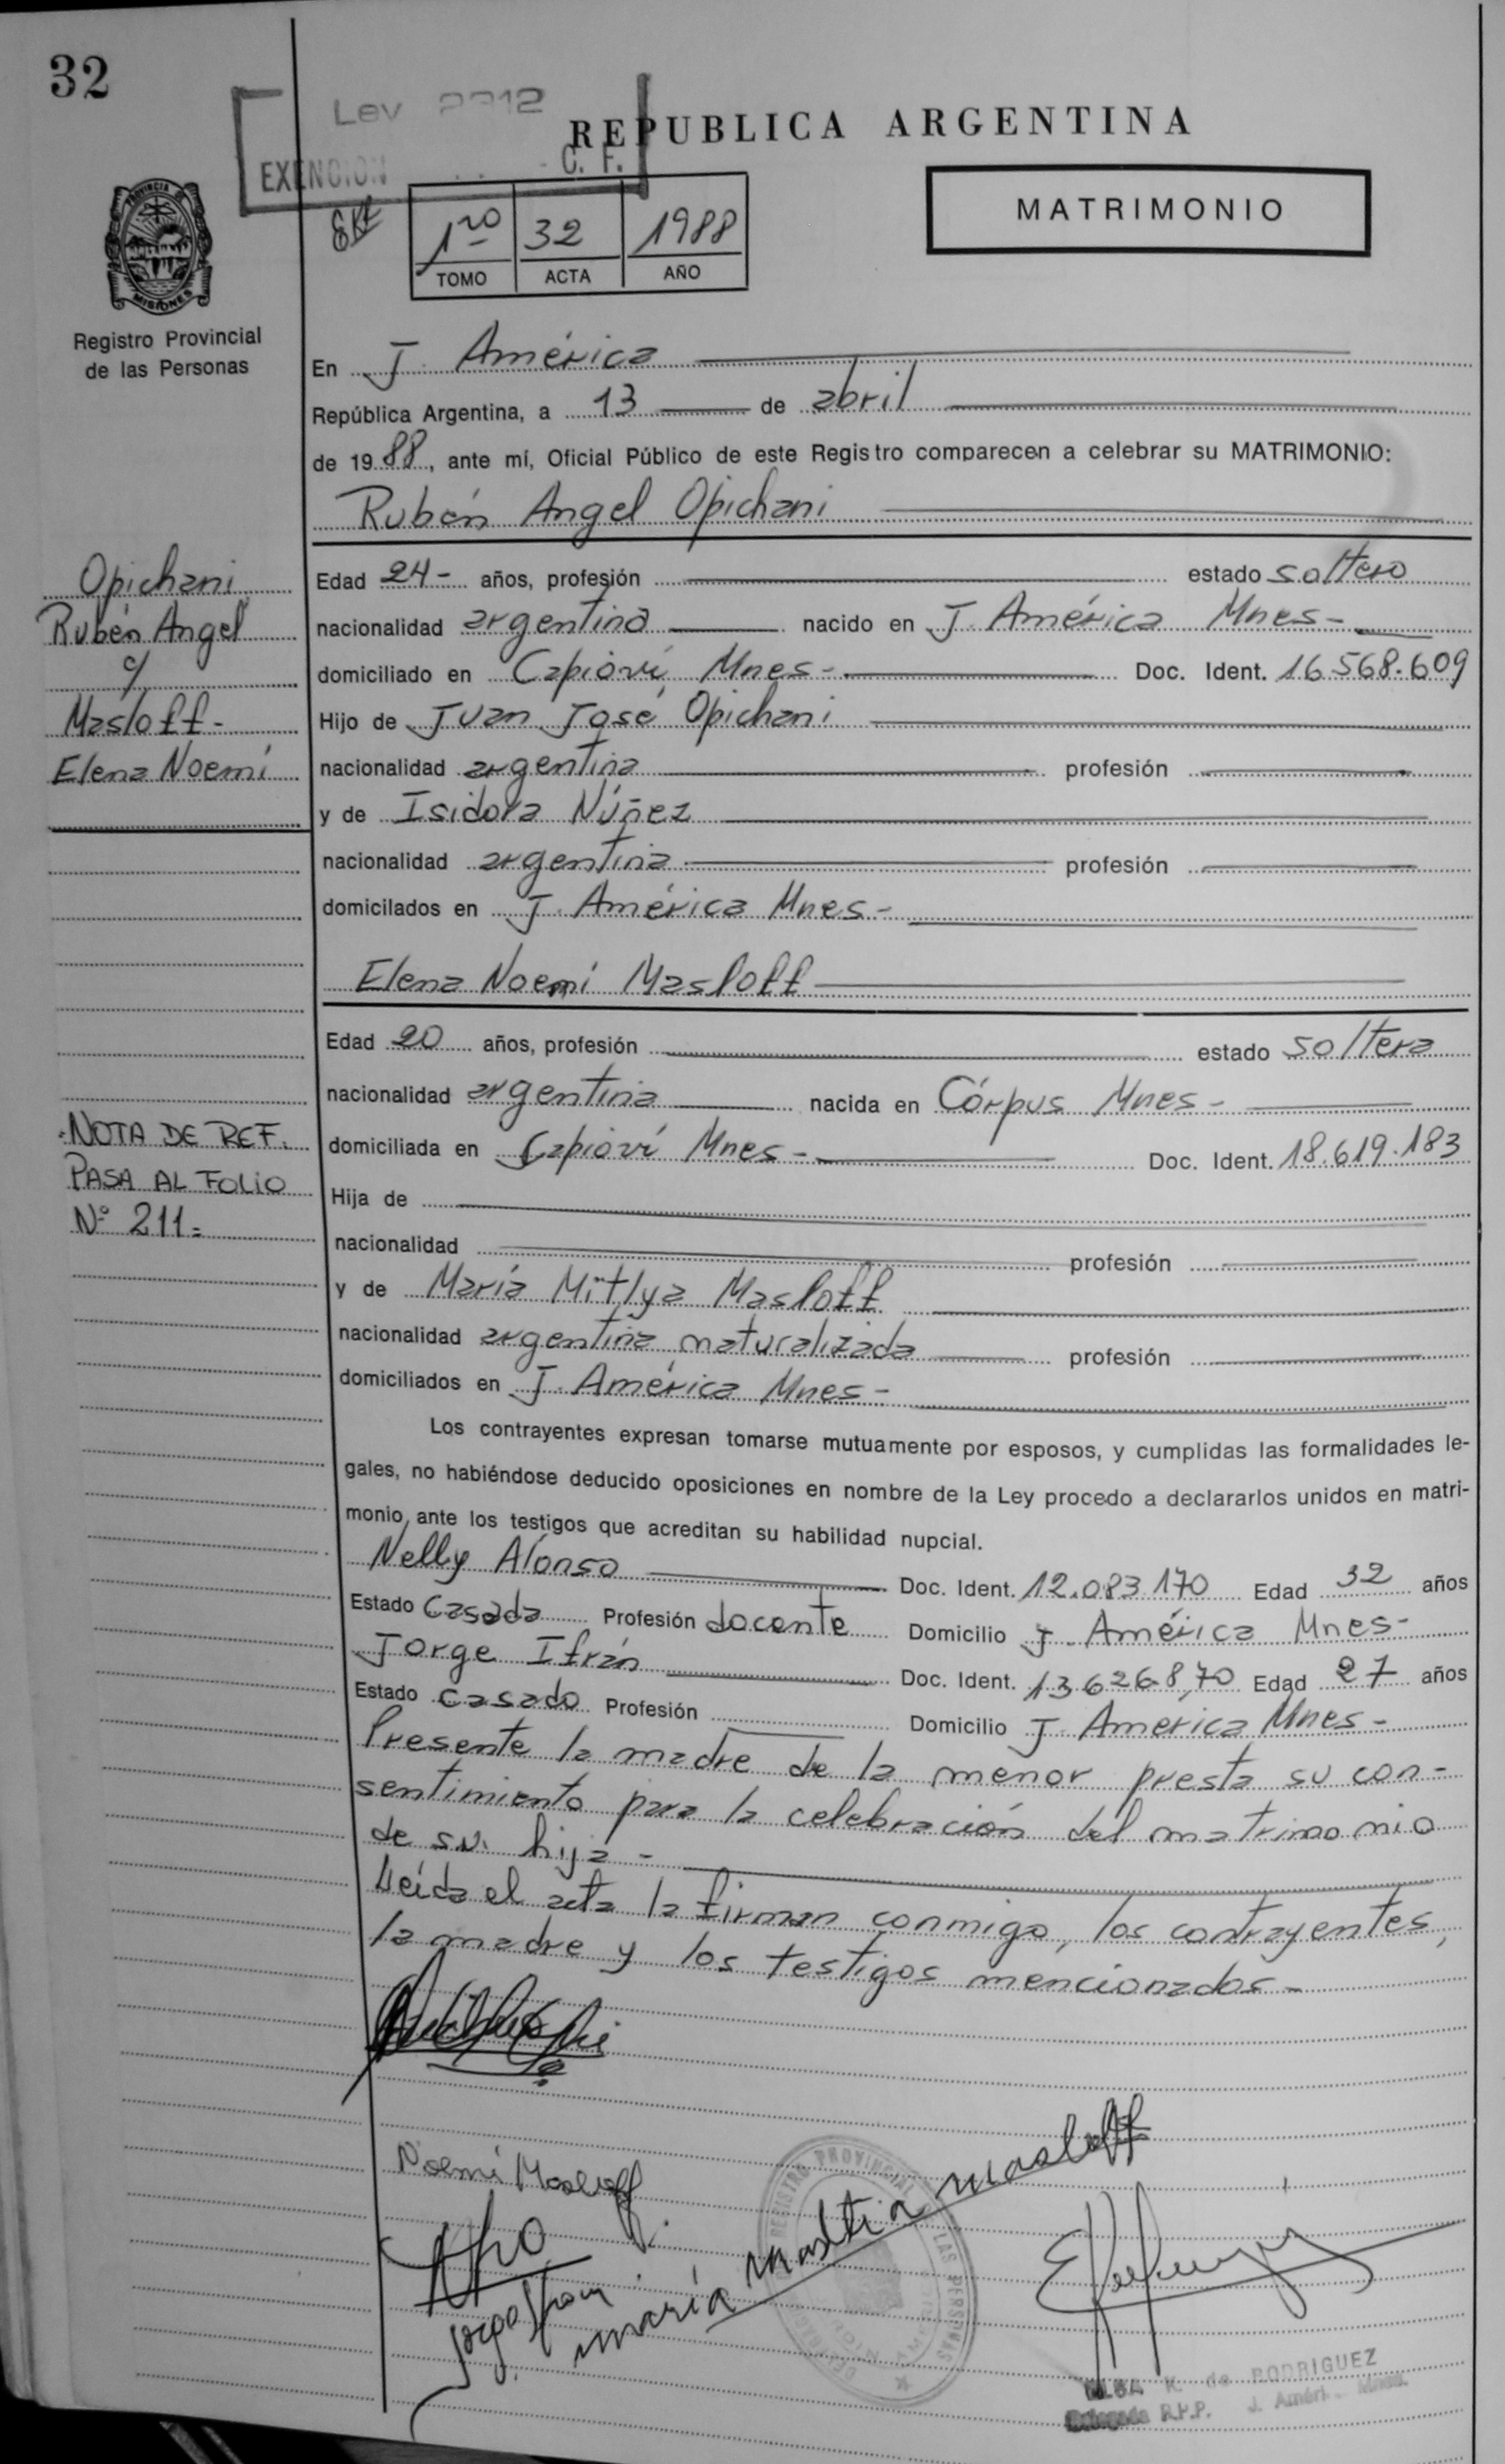 32
Ley 2712
REPUBLICA ARGENTINA
EXENCION C. F.
MATRIMONIO
1ro 32 1988
TOMO ACTA AÑO
PROVINCIA DE
MISIONES
Registro Provincial
de las Personas
En J. América
República Argentina, a 13 de abril
de 1988, ante mí, Oficial Público de este Registro comparecen a celebrar su MATRIMONIO:
Rubén Angel Opichani
Opichani
Rubén Angel
c/
Masloff-
Elena Noemí
Edad 24- años, profesión estado soltero
nacionalidad argentina nacido en J. América Mnes-
domiciliado en Capioví Mnes- Doc. Ident. 16.568.609
Hijo de Juan José Opichani
nacionalidad argentina profesión
y de Isidora Núñez
nacionalidad argentina profesión
domicilados en J. América Mnes-
Elena Noemí Masloff
Edad 20 años, profesión estado soltera
nacionalidad argentina nacida en Córpus Mnes-
domiciliada en Capioví Mnes- Doc. Ident. 18.619.183
Hija de
nacionalidad profesión
y de María Mitlya Masloff
nacionalidad argentina naturalizada profesión
domiciliados en J. América Mnes-
NOTA DE REF.
PASA AL FOLIO
Nº 211=
Los contrayentes expresan tomarse mutuamente por esposos, y cumplidas las formalidades le-
gales, no habiéndose deducido oposiciones en nombre de la Ley procedo a declararlos unidos en matri-
monio, ante los testigos que acreditan su habilidad nupcial.
Nelly Alonso Doc. Ident. 12.083.170 Edad 32 años
Estado Casada Profesión docente Domicilio J. América Mnes-
Jorge Ifrán Doc. Ident. 13.626.870 Edad 27 años
Estado casado Profesión Domicilio J. America Mnes-
Presente la madre de la menor presta su con-
sentimiento para la celebración del matrimonio
de su hija-
Leída el acta la firman conmigo, los contrayentes,
la madre y los testigos mencionados-
Noemí Masloff
maría masltia masloff
REGISTRO PROVINCIAL DE LAS PERSONAS
K. de RODRIGUEZ
Delegada R.P.P. J. Améri Mnes.